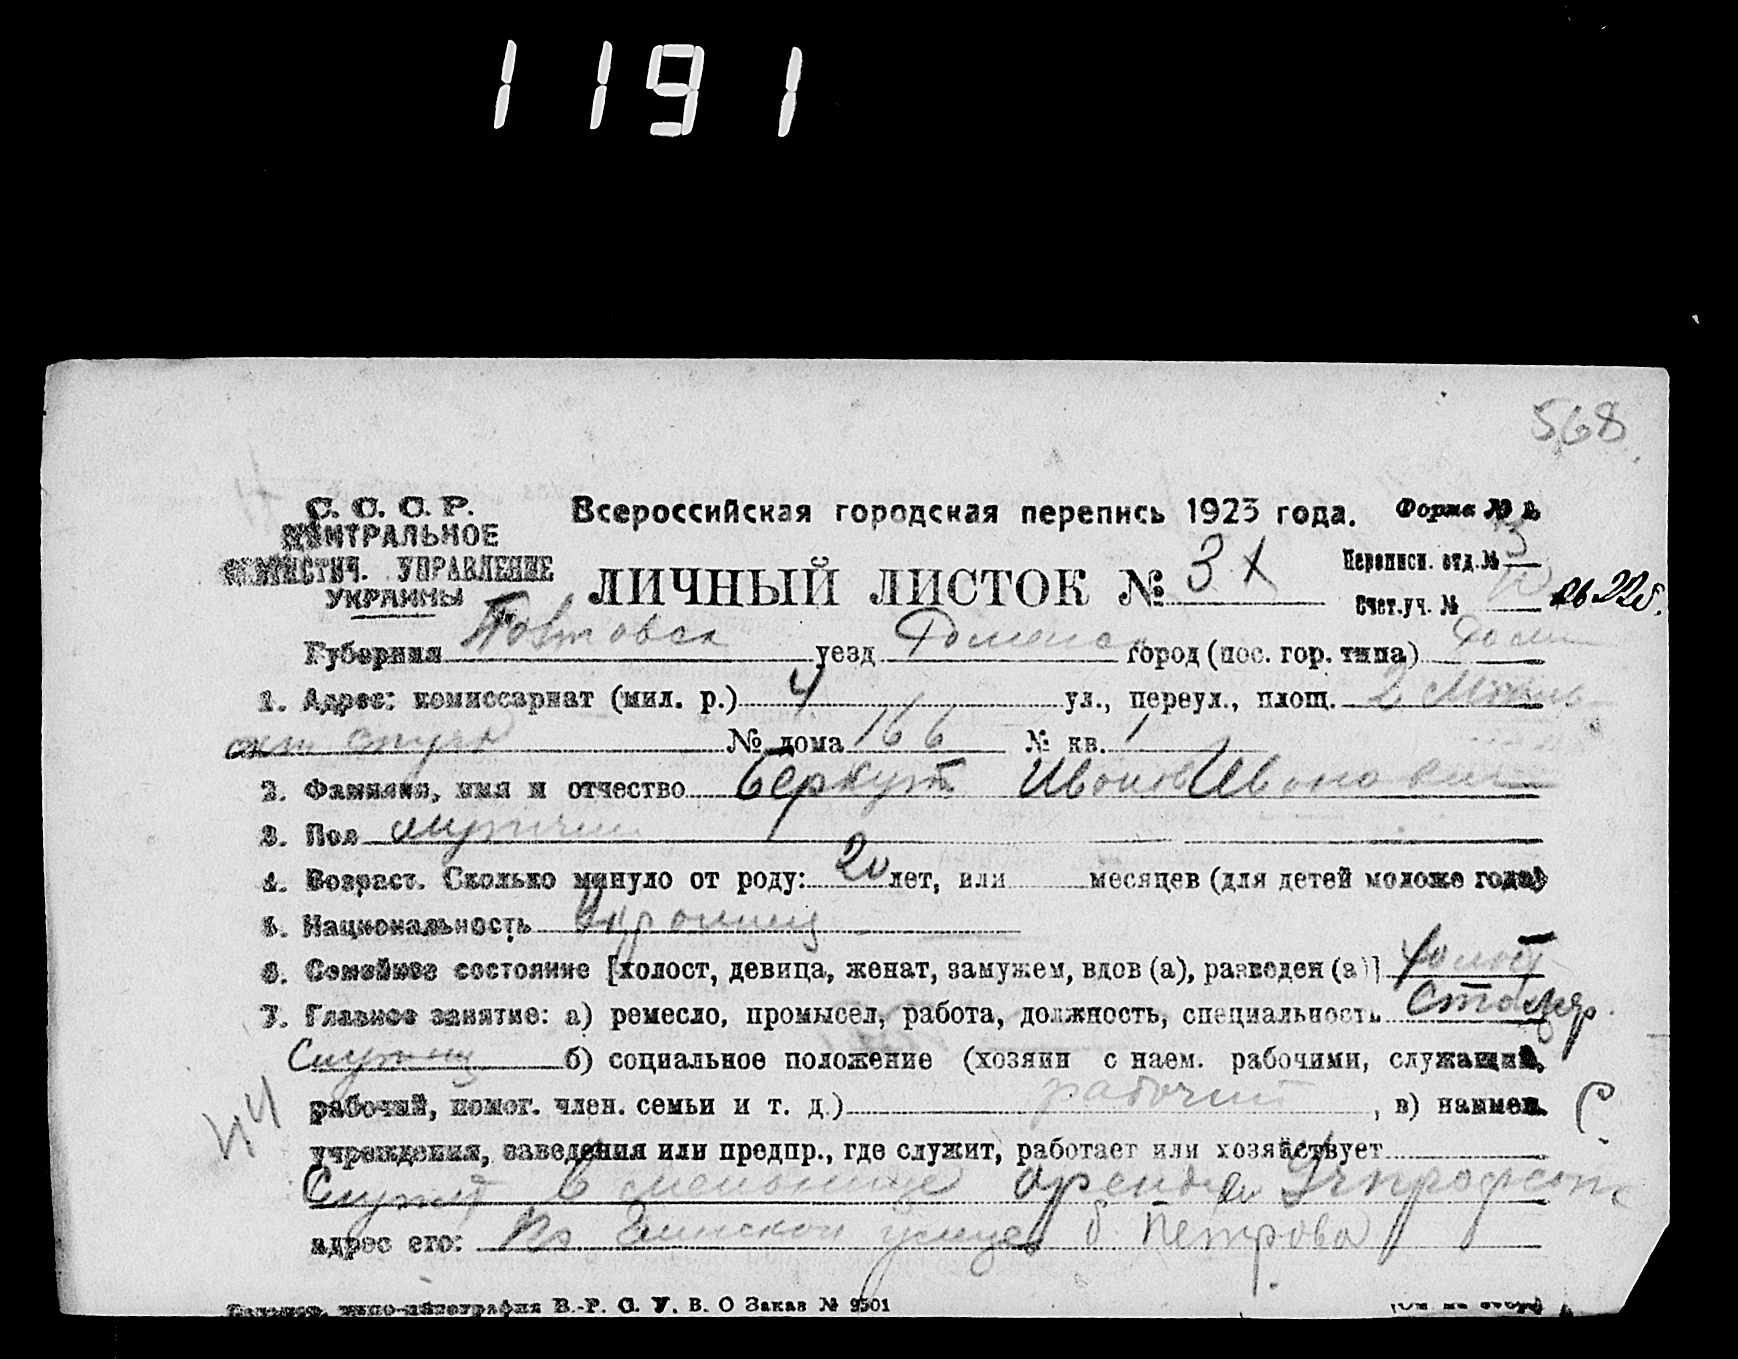 1191
568
С. С. С. Р.
ЦЕНТРАЛЬНОЕ
СТАТИСТИЧ. УПРАВЛЕНИЕ
УКРАИНЫ
Всероссийская городская перепись 1923 года.
Форма № 1.
ЛИЧНЫЙ ЛИСТОК № 3
Переписн. отд. № 3
Счет. уч. №
Губерния уезд Роменск город (пос. гор. типа)
1. Адрес: комиссариат (мил. р.) 4 ул., переул., площ. 2
№ дома 166 № кв. 1
2. Фамилия, имя и отчество Беркут Иван Иванович
3. Пол мужчин
4. Возраст. Сколько минуло от роду: 20 лет, или месяцев (для детей моложе года)
5. Национальность Украинец
6. Семейное состояние [холост, девица, женат, замужем, вдов (а), разведен (а)] холост
7. Главное занятие: а) ремесло, промысел, работа, должность, специальность Столяр
б) социальное положение (хозяин с наем. рабочими, служащий,
рабочий, помог. член. семьи и т. д.) рабочий, в) наимен.
учреждения, заведения или предпр., где служит, работает или хозяйствует
Служит в
адрес его: По улице б. Петрова
типо-литография В.-Р. С. У. В. О Заказ № 9501
44